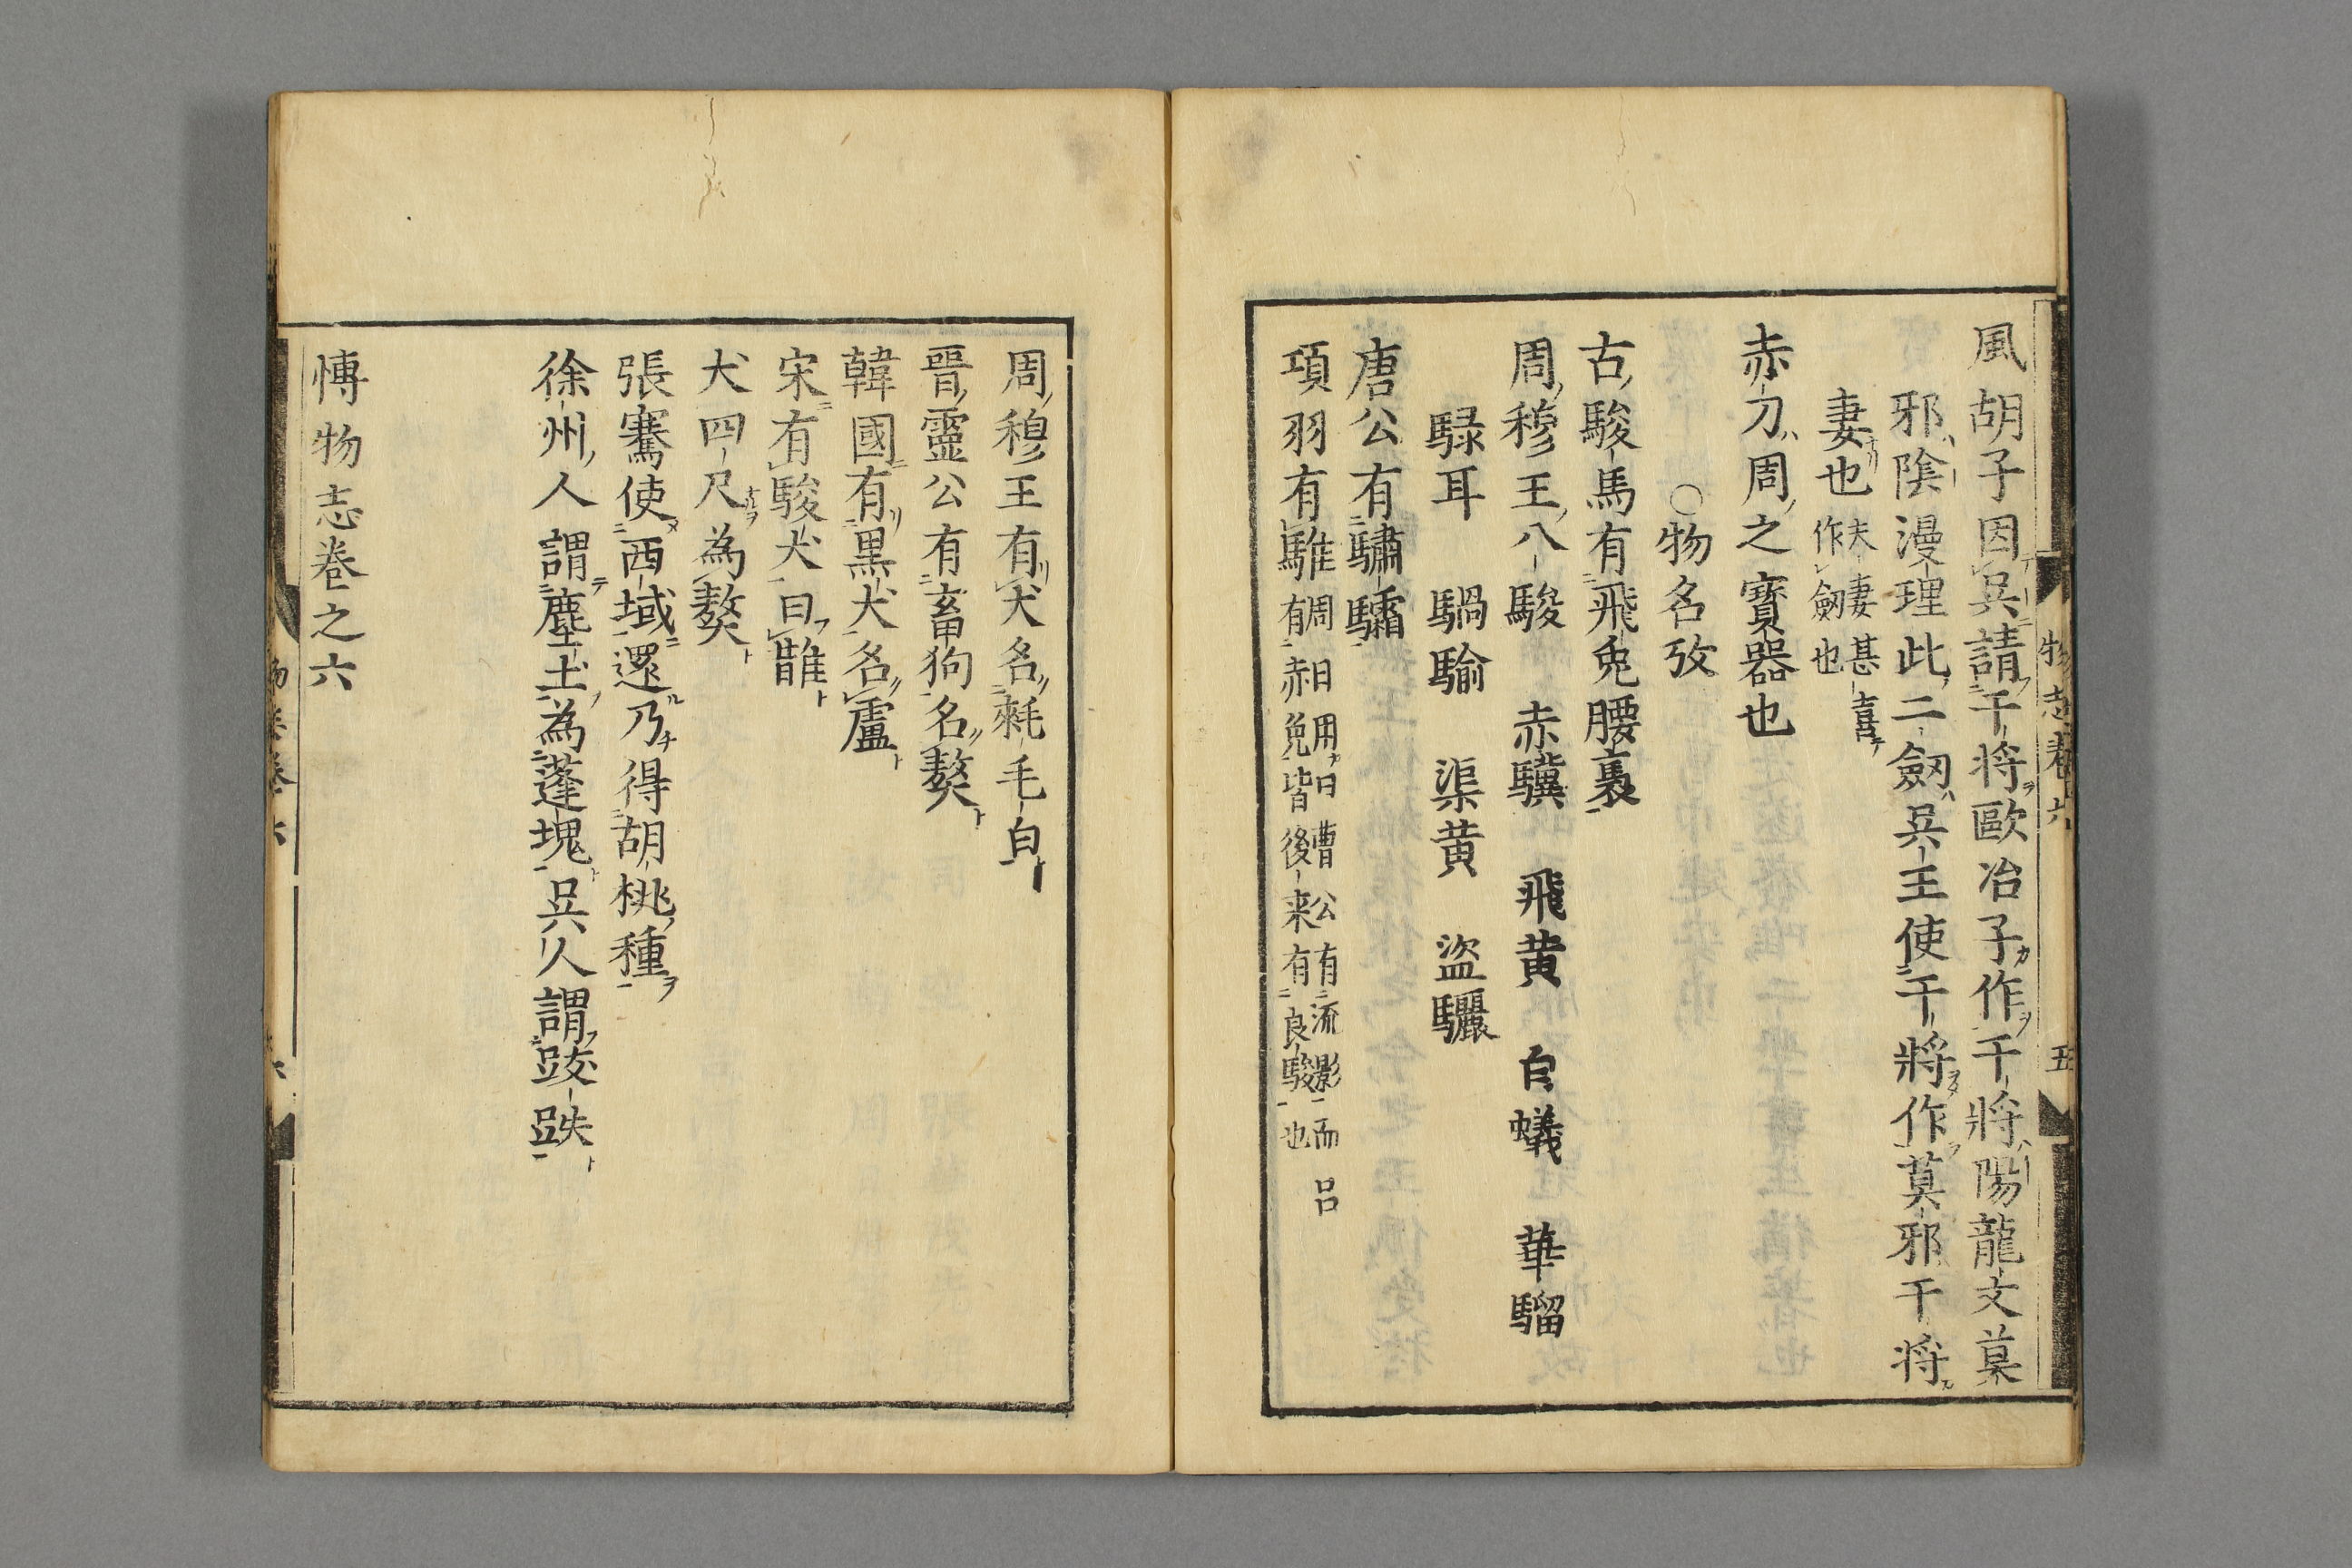 風胡子因吳請干将歐冶子作干將陽龍文莫
邪陰漫理此二劔吳王使干將作莫邪干将
妻也夫妻甚喜
作劔也
赤刀周之寶器也
○物名攷
古駿馬有飛兔腰褭
周穆王八駿赤驥飛黄白蟻華騮
騄耳騧騟渠黄盗驪
唐公有驌驦
項羽有騅周日用曰曹公有流影而呂
有赤兔皆後来有良駿也
物志卷六 五
周穆王有犬名䍽毛白
晋靈公有畜狗名獒
韓國有黒犬名盧
宋有駿犬曰誰
犬四尺為獒
張騫使西域還乃得胡桃種
徐州人謂塵土為蓬塊吳人謂跋跌
愽物志卷之六